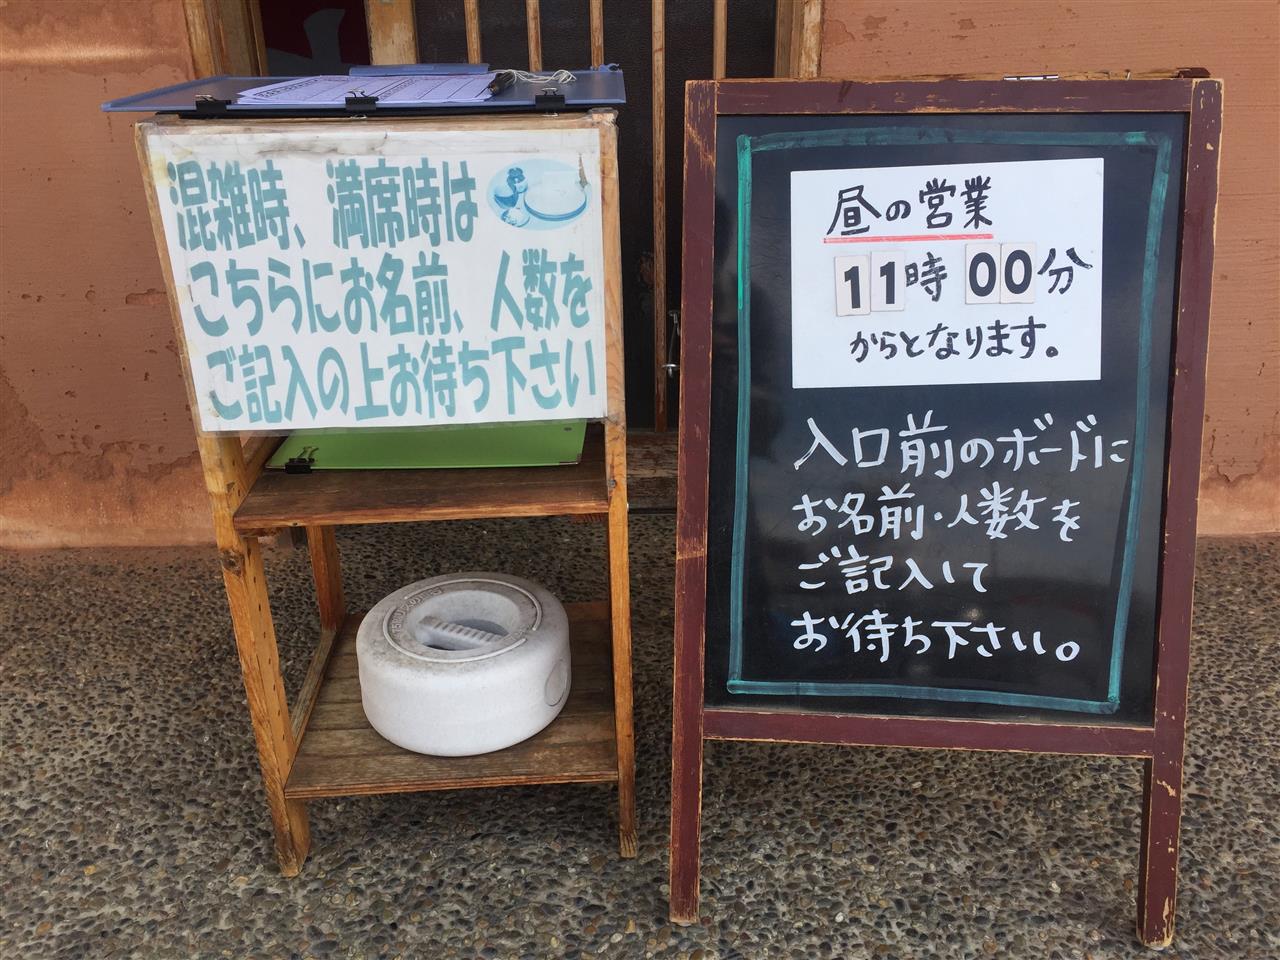 混雑時、満席時は
こちらにお名前、人数を
ご記入の上お待ち下さい
昼の営業
11時00分
からとなります。
入口前のボードに
お名前・人数を
ご記入して
お待ち下さい。